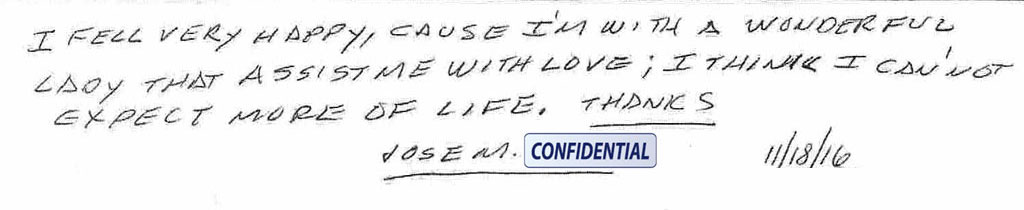 I FELL VERY HAPPY, CAUSE I'M WITH A WONDERFUL
LADY THAT ASSIST ME WITH LOVE; I THINK I CAN'NOT
EXPECT MORE OF LIFE. THANKS
JOSE M. CONFIDENTIAL 11/18/16